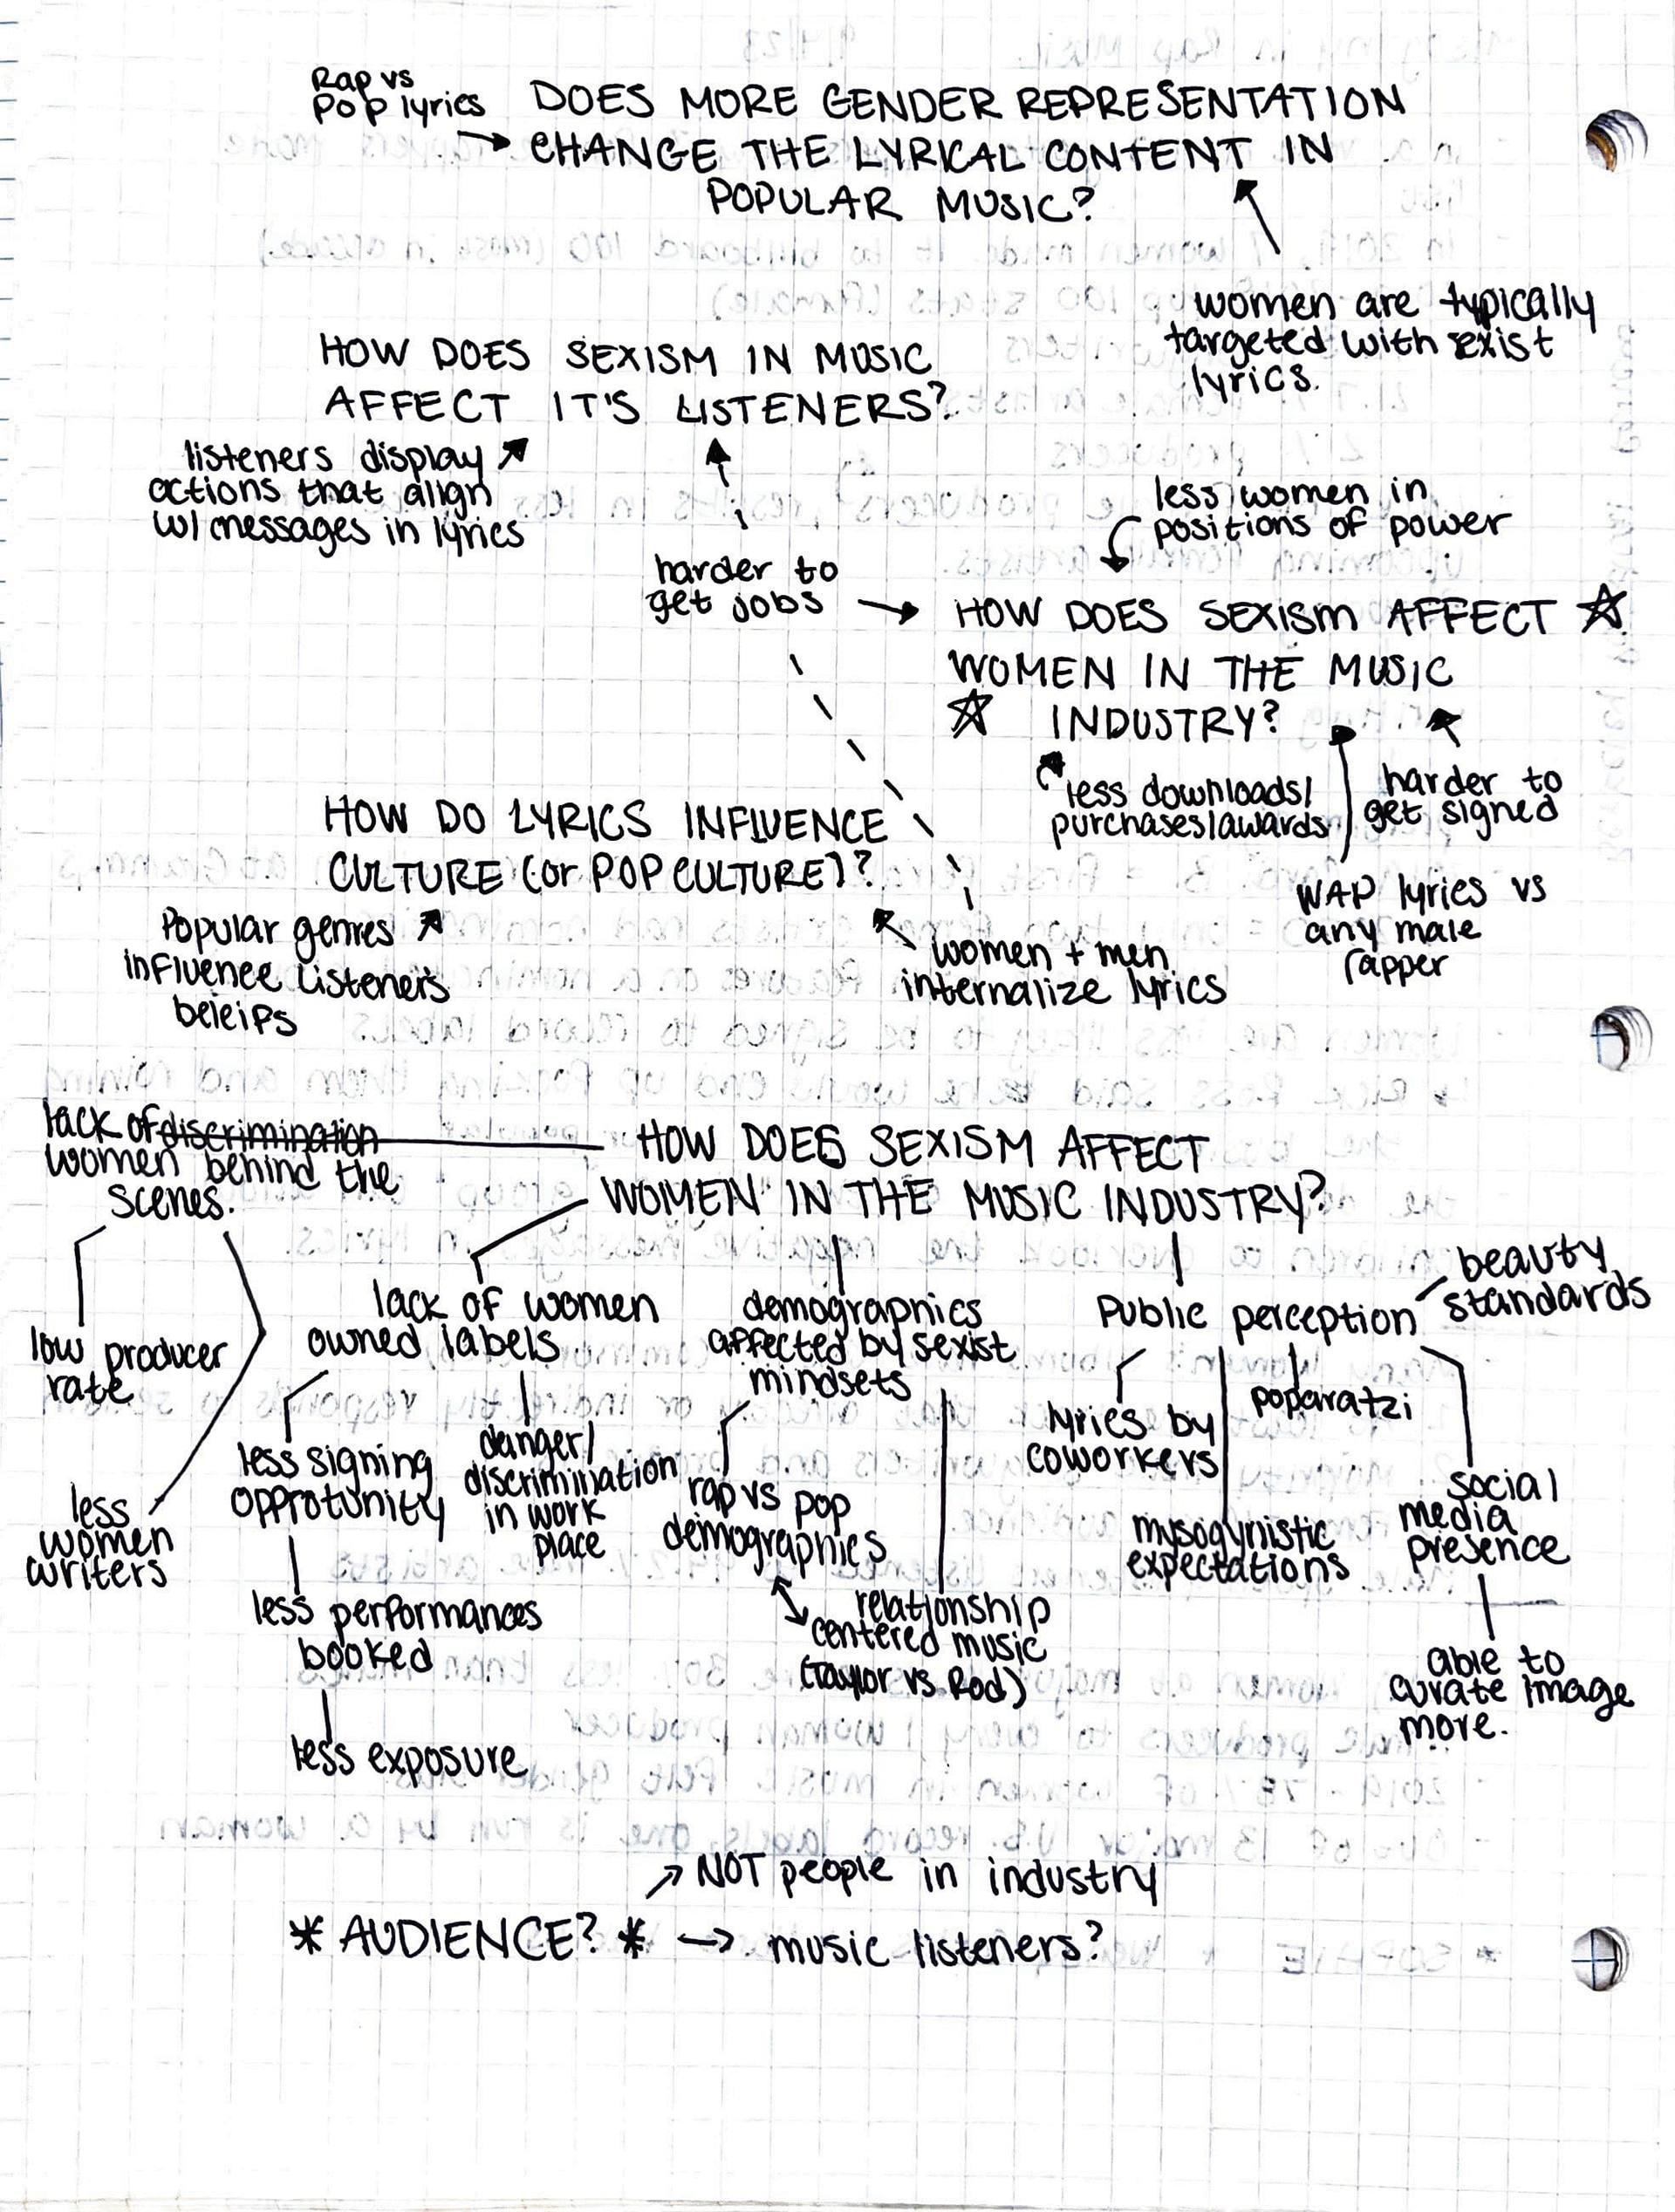 Rap vs
Pop lyrics
DOES MORE GENDER REPRESENTATION
CHANGE THE LYRICAL CONTENT IN
POPULAR MUSIC?
women are typically
targeted with sexist
lyrics.
HOW DOES SEXISM IN MUSIC
AFFECT IT'S LISTENERS?
listeners display
actions that align
w/ messages in lyrics
harder to
get jobs
less women in
positions of power
HOW DOES SEXISM AFFECT
WOMEN IN THE MUSIC
INDUSTRY?
less downloads/
purchases/awards
harder to
get signed
WAP lyrics vs
any male
rapper
HOW DO LYRICS INFLUENCE
CULTURE (or POP CULTURE)?
Popular genres
influence listeners
beleifs
women + men
internalize lyrics
lack of discrimination
women behind the
scenes.
HOW DOES SEXISM AFFECT
WOMEN IN THE MUSIC INDUSTRY?
low producer
rate
less
women
writers
lack of women
owned labels
less signing
opprotunity
less performances
booked
less exposure
danger/
discrimination
in work
place
demographics
affected by sexist
mindsets
rap vs pop
demographics
relationship
centered music
(Taylor vs Rod)
Public perception
beauty
standards
lyrics by
coworkers
mysogynistic
expectations
poparatzi
social
media
presence
able to
curate image
more.
NOT people in industry
* AUDIENCE? * → music listeners?